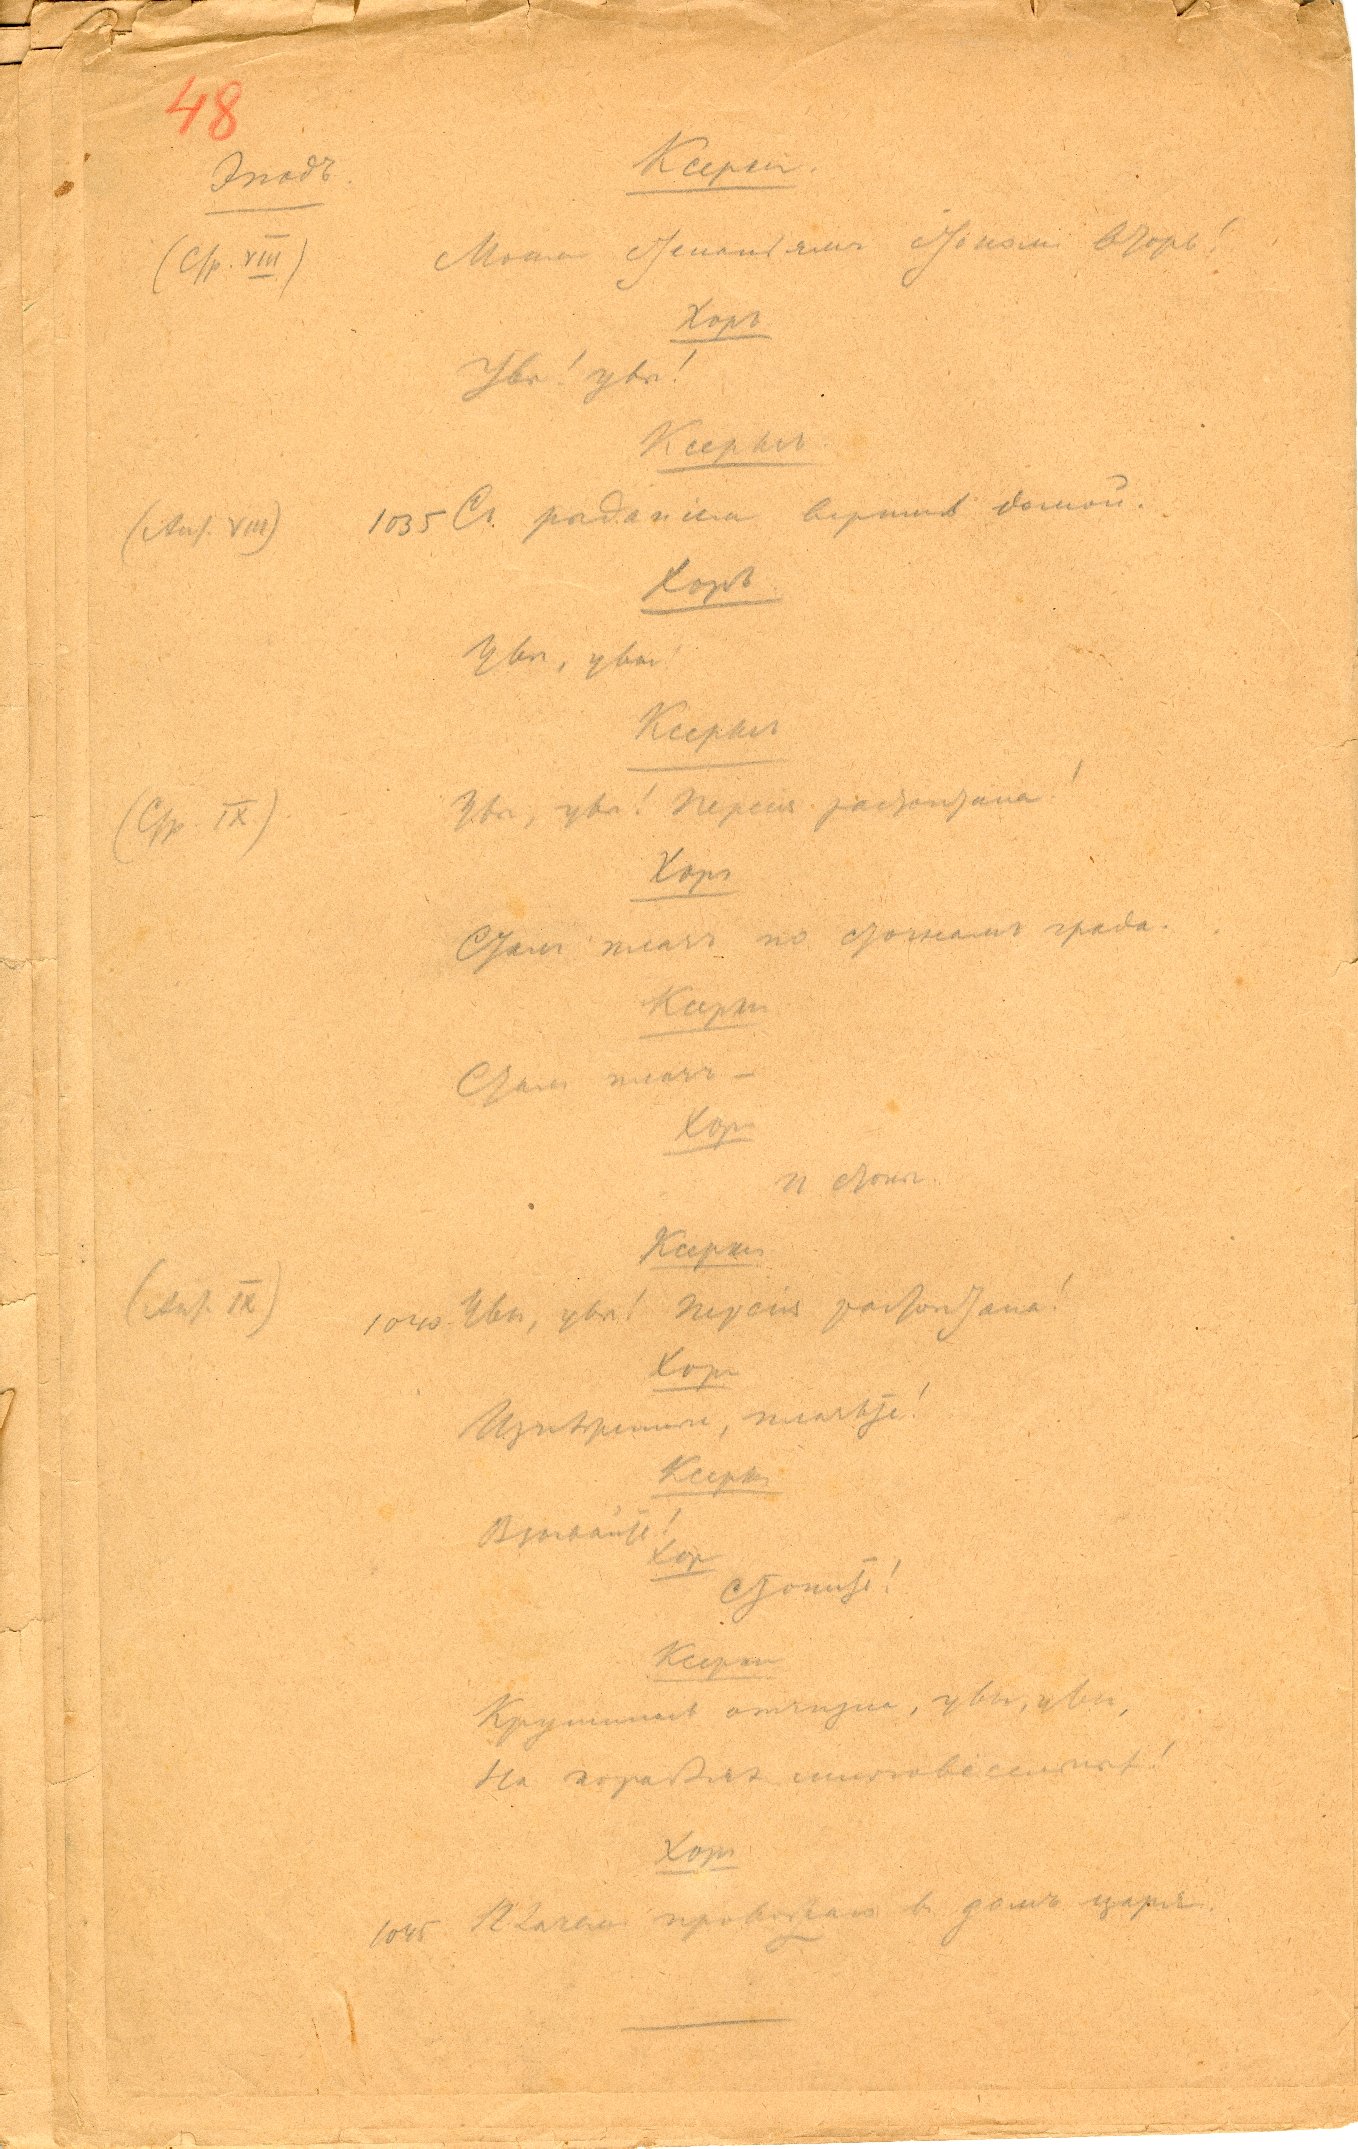 48
Эподъ.
Ксерксъ.
(Стр. VIII)
Моимъ стенаньямъ стономъ вторь!
Хоръ
Увы! увы!
Ксерксъ
(Ант. VIII)
1035 Съ рыданіемъ вернись домой.
Хоръ
Увы, увы!
Ксерксъ
(Стр. IX)
Увы, увы! Персія растоптана!
Хоръ
Стонъ плачъ по стогнамъ града.
Ксерксъ
плачъ –
Хоръ
и стонъ.
Ксерксъ
(Ант. IX)
1040 Увы, увы! Персія растоптана!
Хоръ
Изнѣженные, плачьте!
Ксерксъ
Взывайте!
Хоръ
Стоните!
Ксерксъ
отчизна, увы, увы,
На корабляхъ многовесельныхъ!
Хоръ
1045 Плачемъ провожаю въ домъ царя.